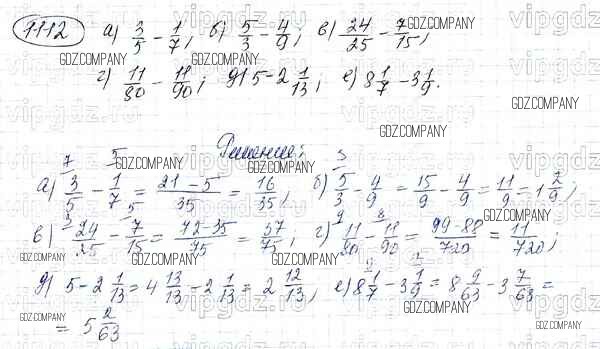 1112 а) 3/5 - 1/7; б) 5/3 - 4/9; в) 24/25 - 7/15;
г) 11/80 - 11/90; д) 5 - 2 1/13; е) 8 1/7 - 3 1/9.
Решение:
а) 3/5 - 1/7 = (21-5)/35 = 16/35; б) 5/3 - 4/9 = 15/9 - 4/9 = 11/9 = 1 2/9;
в) 24/25 - 7/15 = (72-35)/75 = 37/75; г) 11/80 - 11/90 = (99-88)/720 = 11/720;
д) 5 - 2 1/13 = 4 13/13 - 2 1/13 = 2 12/13; е) 8 1/7 - 3 1/9 = 8 9/63 - 3 7/63 =
= 5 2/63